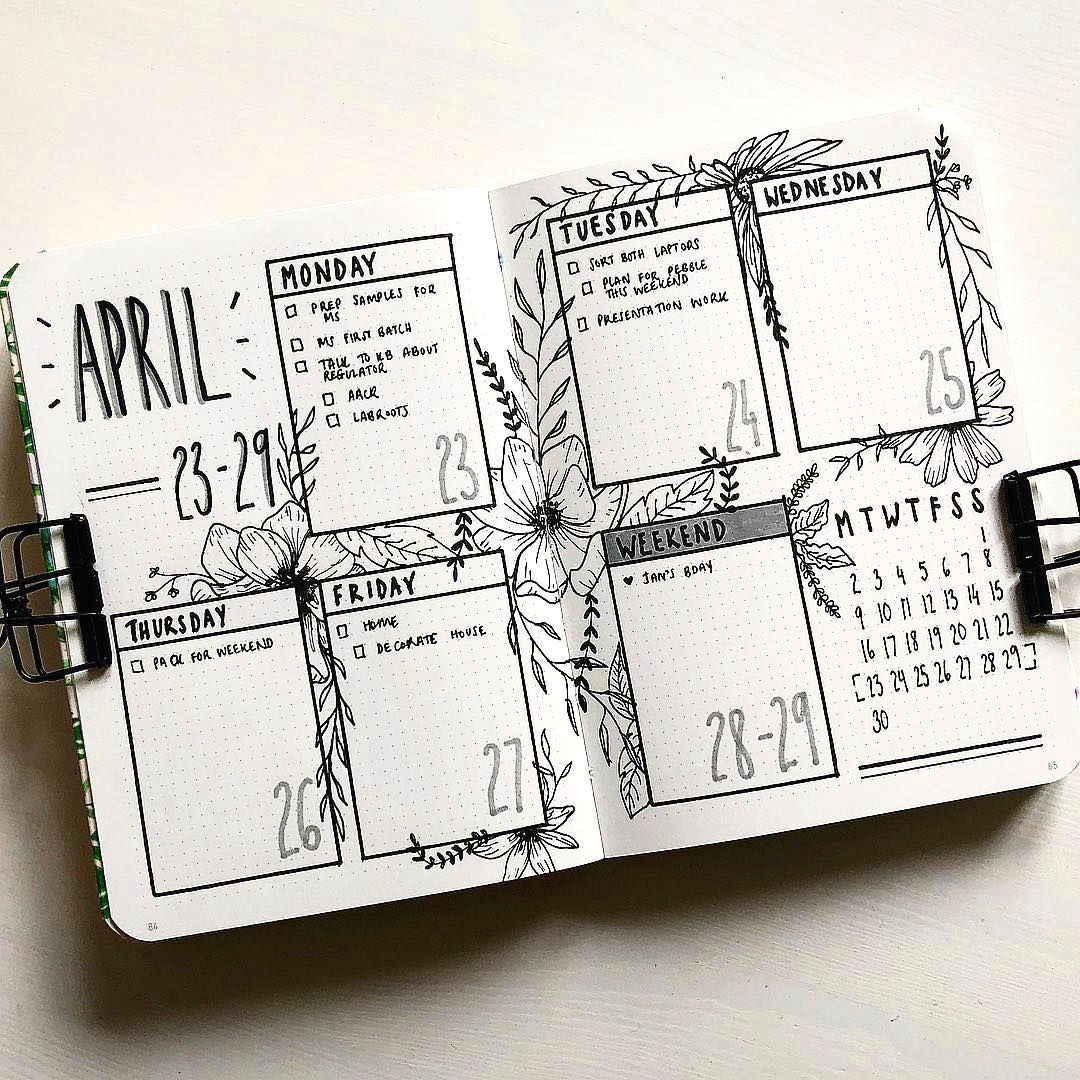 APRIL
23-29
MONDAY
PREP SAMPLES FOR
MS
MS FIRST BATCH
TALK TO KB ABOUT
REGULATOR
AACR
LABROOTS
23
TUESDAY
SORT BOTH LAPTOPS
PLAN FOR PEBBLE
THIS WEEKEND
PRESENTATION WORK
24
WEDNESDAY
25
THURSDAY
PACK FOR WEEKEND
26
FRIDAY
HOME
DECORATE HOUSE
27
WEEKEND
♥ JAN'S BDAY
28-29
M T W T F S S
1
2 3 4 5 6 7 8
9 10 11 12 13 14 15
16 17 18 19 20 21 22
[23 24 25 26 27 28 29]
30
84
85